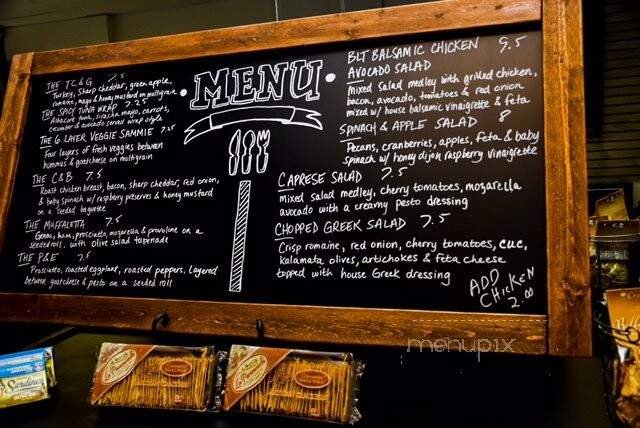 MENU
THE TC & G 7.5
Turkey, sharp cheddar, green apple,
romaine, mayo & honey mustard on multigrain
THE SPICY TUNA WRAP 7.25
Albacore tuna, siracha mayo, carrots,
cucumber & avocado served wrap style
THE 6 LAYER VEGGIE SAMMIE 7.25
Four layers of fresh veggies between
hummus & goatchese on multigrain
THE C&B 7.5
Roast chicken breast, bacon, sharp cheddar, red onion,
& baby spinach w/ raspberry preserves & honey mustard
on a seeded baguette
THE MUFFALETTA 7.5
Genoa, ham, prosciutto, mozarella & provolone on a
seeded roll, with olive salad tapenade
THE P&E 7.5
Prosciutto, roasted eggplant, roasted peppers, layered
between goatcheese & pesto on a seeded roll
BLT BALSAMIC CHICKEN 9.5
AVOCADO SALAD
Mixed salad medley with grilled chicken,
bacon, avocado, tomatoes & red onion
mixed w/ house balsamic vinaigrette & feta
SPINACH & APPLE SALAD 8
Pecans, cranberries, apples, feta & baby
spinach w/ honey dijon raspberry vinaigrette
CAPRESE SALAD 7.5
mixed salad medley, cherry tomatoes, mozarella
avocado with a creamy pesto dressing
CHOPPED GREEK SALAD 7.5
Crisp romaine, red onion, cherry tomatoes, cuc,
kalamata olives, artichokes & feta cheese
topped with house Greek dressing
ADD
CHICKEN
2.00
menupix
Sardines